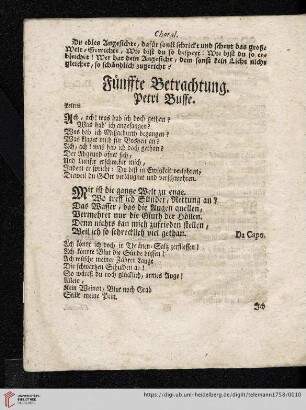 Choral.
Du edles Angesichte, dafür sonst schrickt und scheut das grosse
Welt-Gewichte, Wie bist du so bespeyt! Wie bist du so er-
bleichet! Wer hat dein Angesicht, dem sonst kein Licht nicht
gleichet, so schändlich zugericht?
Fünffte Betrachtung.
Petri Busse.
Petrus
Ach, ach! was hab ich doch gethan?
Was hab' ich angefangen?
Was hab ich Missethat begangen?
Was klaget mich für Bosheit an?
Ach, ach! was hab ich doch gethan?
Der Abgrund öfnet sich,
Und Lucifer erschrecket mich,
Indem er spricht: Du bist in Ewigkeit verlohren,
Dieweil du GOtt verläugnet und verschworen.
Mir ist die gantze Welt zu enge.
Wo treff ich Sünder, Rettung an?
Das Wasser, das die Augen quellen,
Vermehret nur die Gluth der Höllen.
Denn nichts kan mich zufrieden stellen,
Weil ich so schrecklich viel gethan. Da Capo.
Ach könnt ich doch, in Thränen-Saltz zerfliessen!
Ach könnte Blut die Sünde büssen!
Ach wüsche meiner Zähren Lauge
Die schwartzen Schulden ab!
So wärest du noch glücklich, armes Auge!
Allein,
Kein Weinen, Blut noch Grab
Stillt meine Pein.
Ich
https://digi.ub.uni-heidelberg.de/diglit/telemann1758/0010
© Universitätsbibliothek Heidelberg